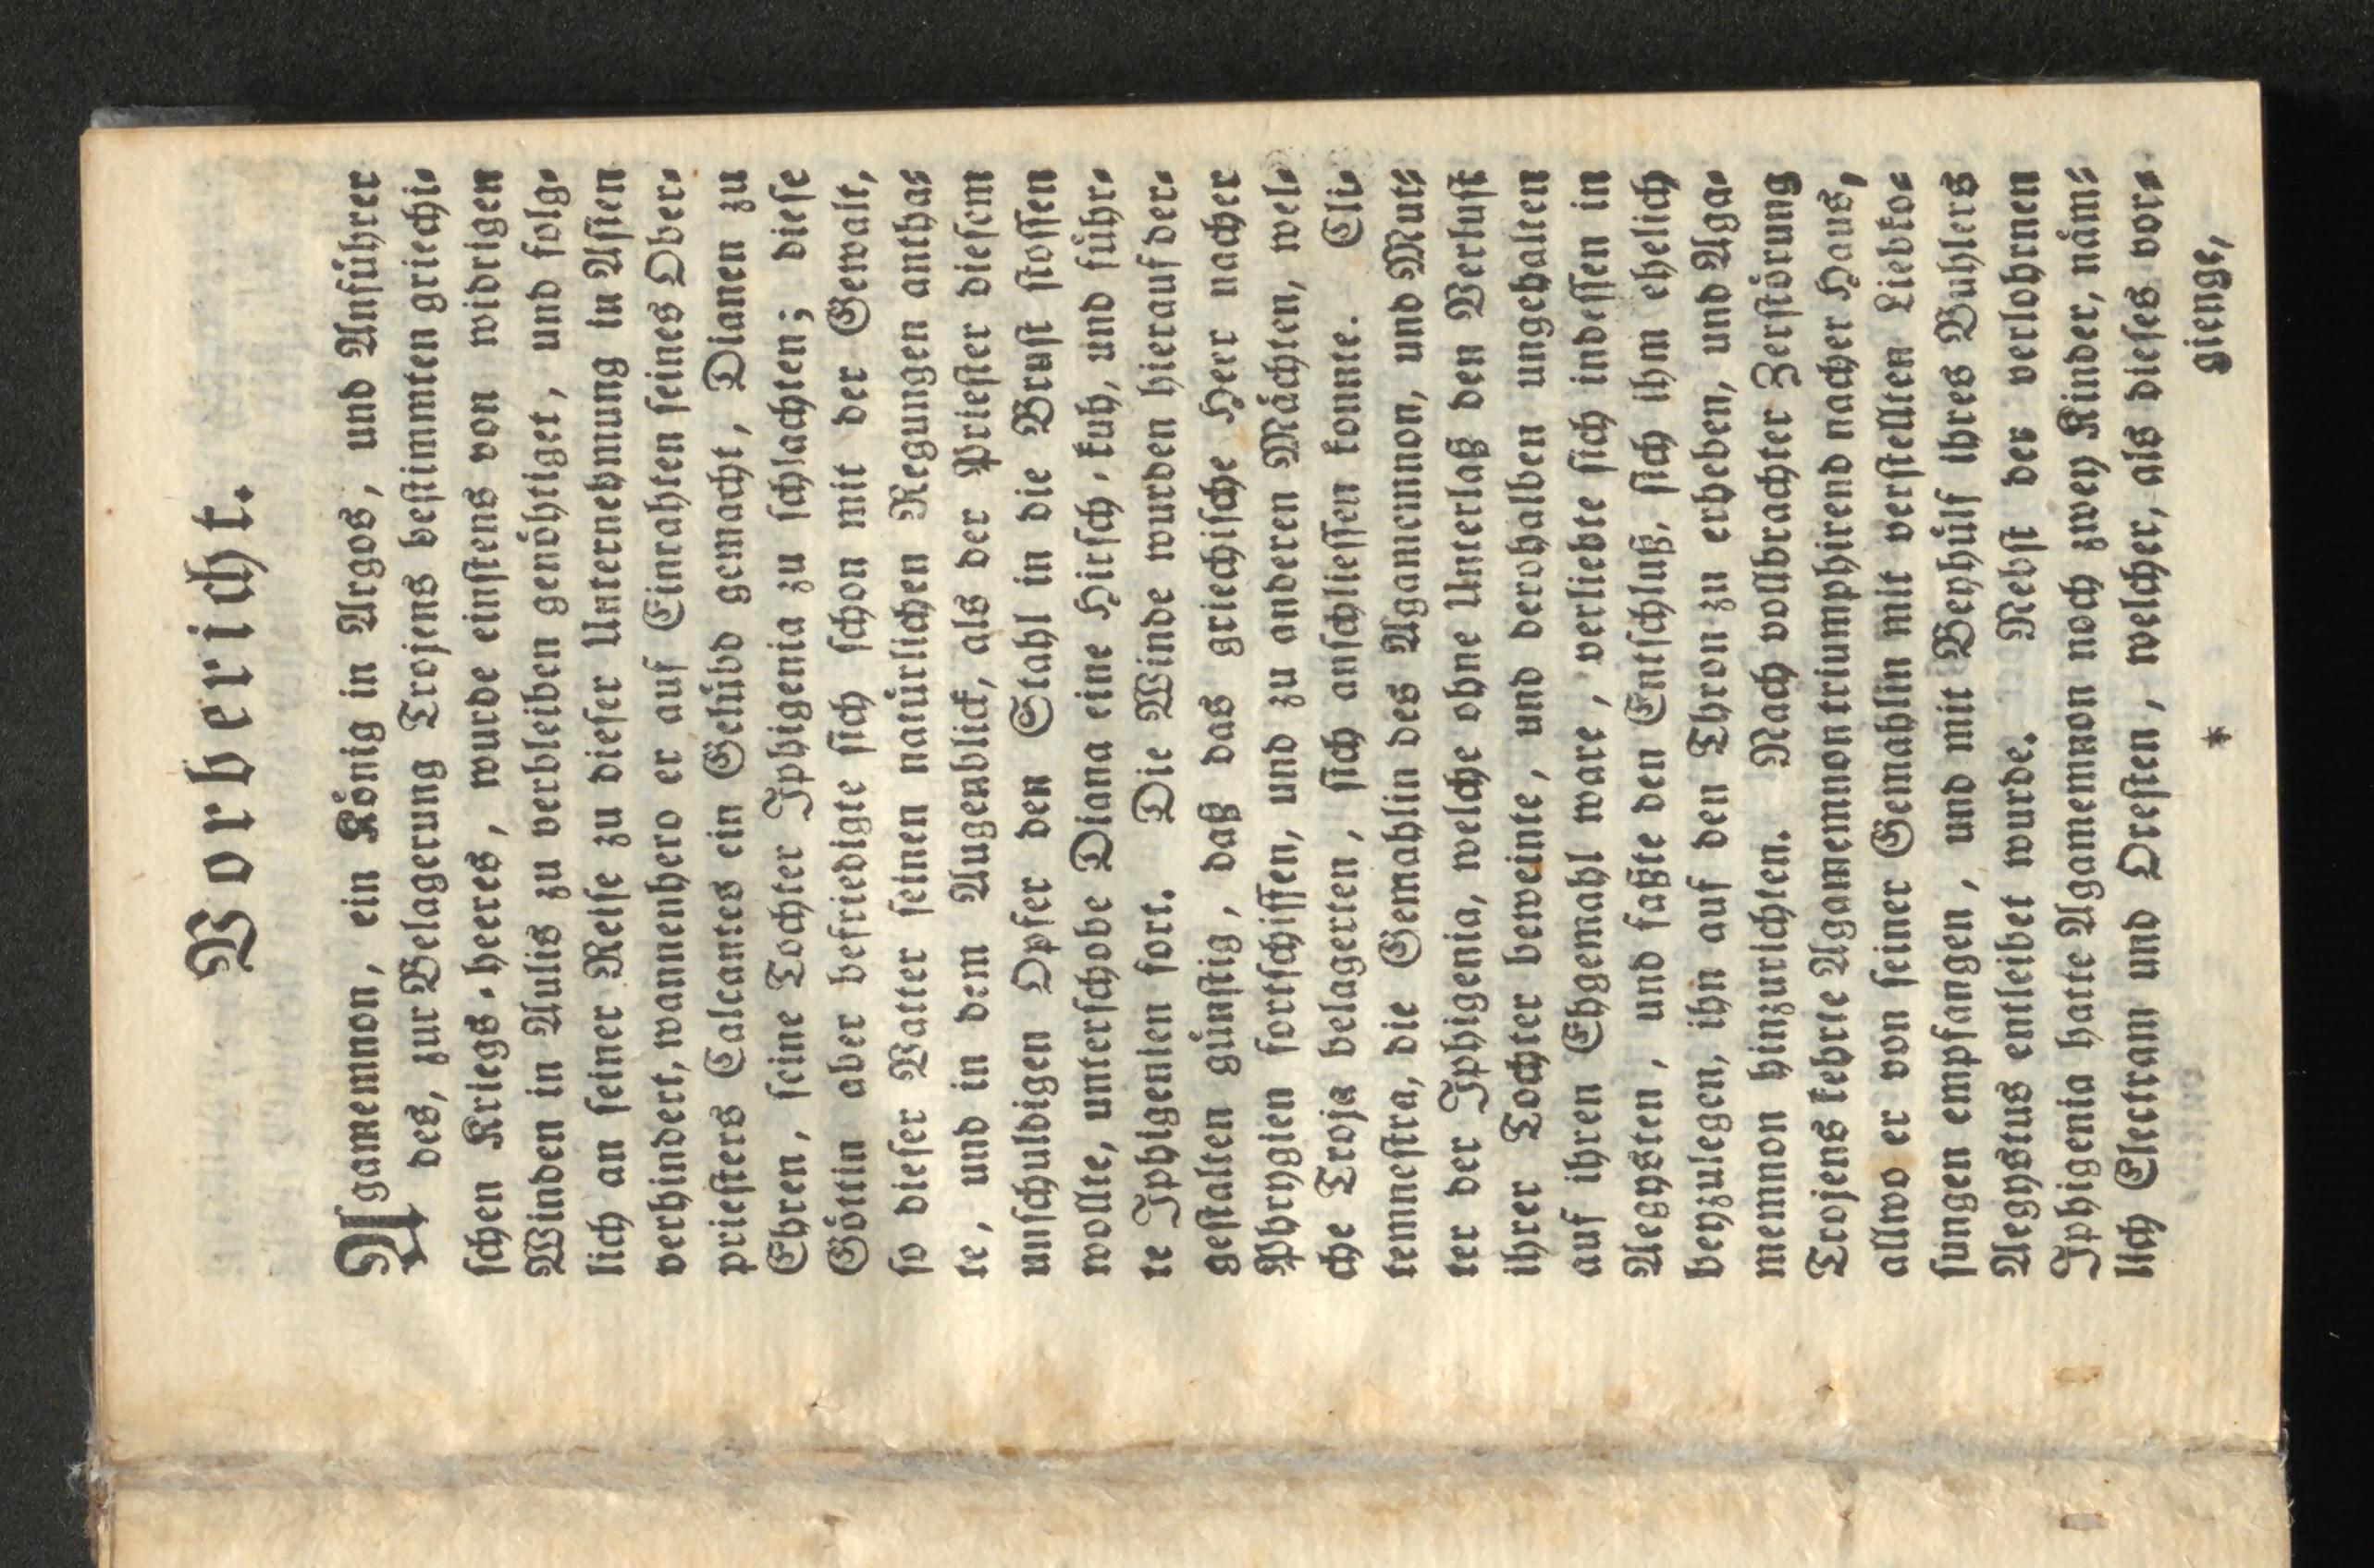 Vorbericht.
Agamemnon, ein König in Argos, und Anführer
des, zur Belagerung Trojens bestimmten griechi-
schen Kriegs-heeres, wurde einstens von widrigen
Winden in Aulis zu verbleiben genöhtiget, und folg-
lich an seiner Reise zu dieser Unternehmung in Asien
verhindert, wannenhero er auf Einrahten seines Ober-
priesters Calcantes ein Gelübd gemacht, Dianen zu
Ehren, seine Tochter Iphigenia zu schlachten; diese
Göttin aber befriedigte sich schon mit der Gewalt,
so dieser Vatter seinen natürlichen Regungen antha-
te, und in dem Augenblick, als der Priester diesem
unschuldigen Opfer den Stahl in die Brust stossen
wollte, unterschobe Diana eine Hirsch-kuh, und führ-
te Iphigenien fort. Die Winde wurden hierauf der-
gestalten günstig, daß das griechische Heer nacher
Phrygien fortschiffen, und zu anderen Mächten, wel-
che Troja belagerten, sich anschliessen konnte. Cli-
temnestra, die Gemahlin des Agamemnon, und Mut-
ter der Iphigenia, welche ohne Unterlaß den Verlust
ihrer Tochter beweinte, und derohalben ungehalten
auf ihren Ehgemahl ware, verliebte sich indessen in
Aegysten, und faßte den Entschluß, sich ihm ehelich
beyzulegen, ihn auf den Thron zu erheben, und Aga-
memnon hinzurichten. Nach vollbrachter Zerstörung
Trojens kehrte Agamemnon triumphirend nacher Haus,
allwo er von seiner Gemahlin mit verstellten Liebko-
sungen empfangen, und mit Beyhülf ihres Buhlers
Aegystus entleibet wurde. Nebst der verlohrnen
Iphigenia hatte Agamemnon noch zwey Kinder, näm-
lich Electram und Oresten, welcher, als dieses vor-
* gienge,